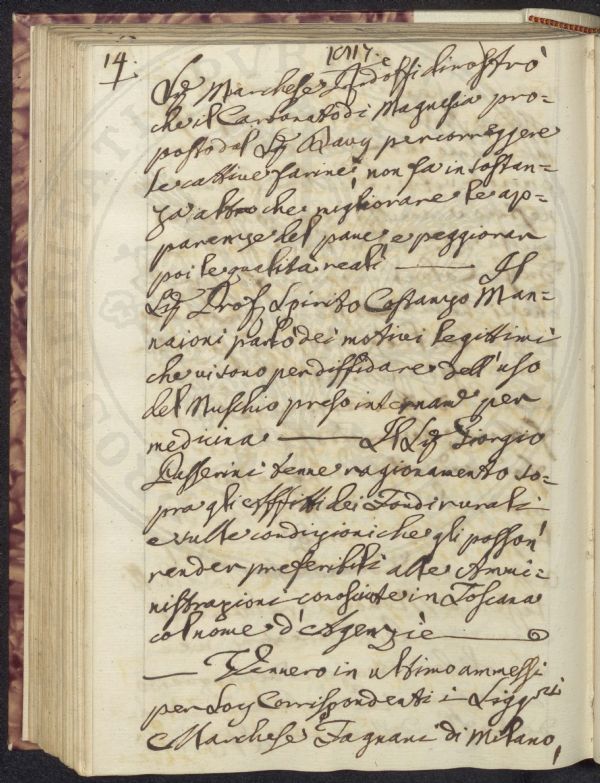 14.
1817.
Sig Marchese Ridolfi dimostrò
che il Carbonato di Magnesia pro=
posto dal Sig Davy per correggere
le cattive farine, non fa in sostan=
za altro che migliorare le ap=
parenze del pane, e peggiorar
poi le qualità reali — Il
Sig Prof. Spirito Costanzo Man=
naioni parlò dei motivi legittimi
che vi sono per diffidare dell'uso
del Muschio preso internam per
medicina — Il Sig Giorgio
Passerini tenne ragionamento so=
pra gli effitti dei Fondi rurali
e sulle condizioni che gli posson
render preferibili alle Ammi=
nistrazioni conosciute in Toscana
col nome d'Agenzie
— Vennero in ultimo ammessi
per Socj Corrispondenti i Sigg.ri
Marchese Fagnani di Milano,